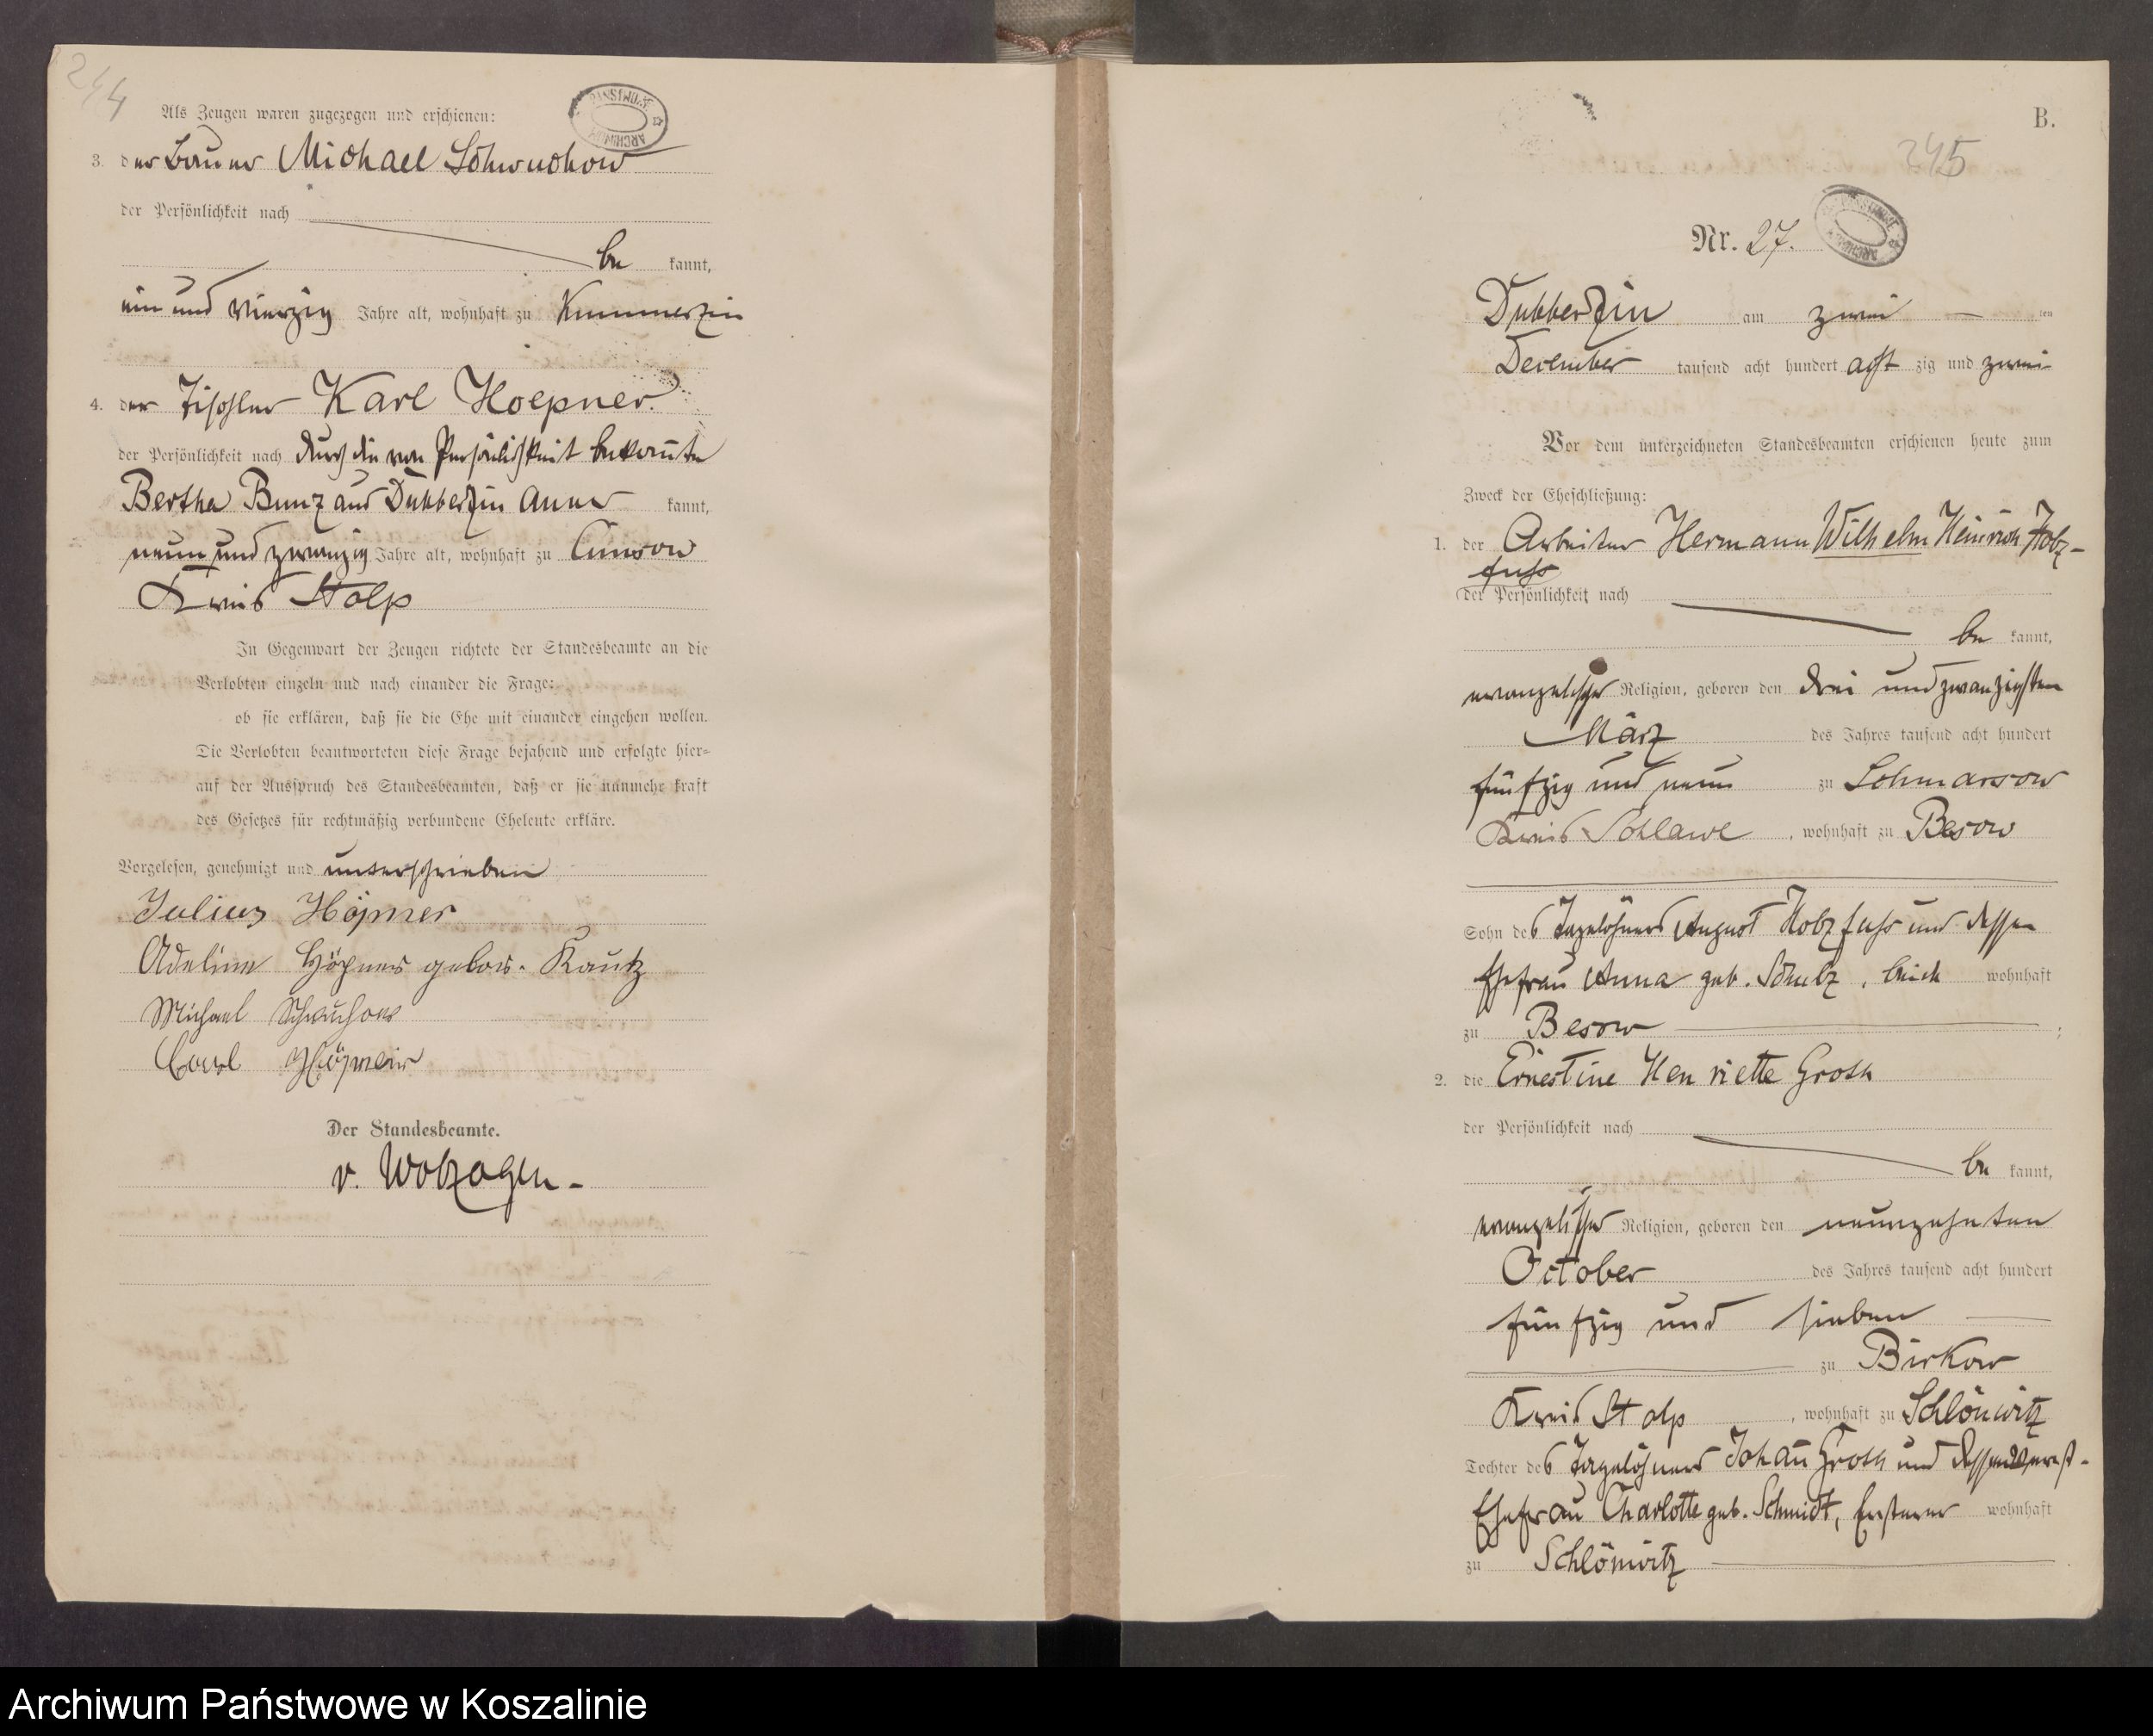 244
Als Zeugen waren zugezogen und erschienen:
3. der Bauer Michael Schwuchow
der Persönlichkeit nach
be kannt,
ein und vierzig Jahre alt, wohnhaft zu Kummerzin
4. der Tischler Karl Hoepner
der Persönlichkeit nach durch die von Persönlichkeit bekannte
Bertha Bunz aus Dubberzin aner kannt,
neun und zwanzig Jahre alt, wohnhaft zu Cunsow
Kreis Stolp
In Gegenwart der Zeugen richtete der Standesbeamte an die
Verlobten einzeln und nach einander die Frage:
ob sie erklären, daß sie die Ehe mit einander eingehen wollen.
Die Verlobten beantworteten diese Frage bejahend und erfolgte hier=
auf der Ausspruch des Standesbeamten, daß er sie nunmehr kraft
des Gesetzes für rechtmäßig verbundene Eheleute erkläre.
Vorgelesen, genehmigt und unterschrieben
Julius Höpner
Adeline Höpner gebor. Kautz
Michael Schwuchow
Carl Höpner
Der Standesbeamte.
v. Wolzogen
B.
245
Nr. 27.
Dubberzin am zwei ten
December tausend acht hundert acht zig und zwei
Vor dem unterzeichneten Standesbeamten erschienen heute zum
Zweck der Eheschließung:
1. der Arbeiter Hermann Wilhelm Heinrich Holz-
fuss
der Persönlichkeit nach
be kannt,
evangelischer Religion, geboren den drei und zwanzigsten
März des Jahres tausend acht hundert
fünfzig und neun zu Schmarsow
Kreis Schlawe, wohnhaft zu Besow
Sohn des Tagelöhners August Holzfuss und dessen
Ehefrau Anna geb. Schulz, beide wohnhaft
zu Besow ;
2. die Ernestine Henriette Groth
der Persönlichkeit nach
be kannt,
evangelischer Religion, geboren den neunzehnten
October des Jahres tausend acht hundert
fünfzig und sieben
zu Birkow
Kreis Stolp, wohnhaft zu Schlönwitz
Tochter des Tagelöhners Johann Groth und dessen verst.
Ehefrau Charlotte geb. Schmidt, Ersterer wohnhaft
zu Schlönwitz
Archiwum Państwowe w Koszalinie